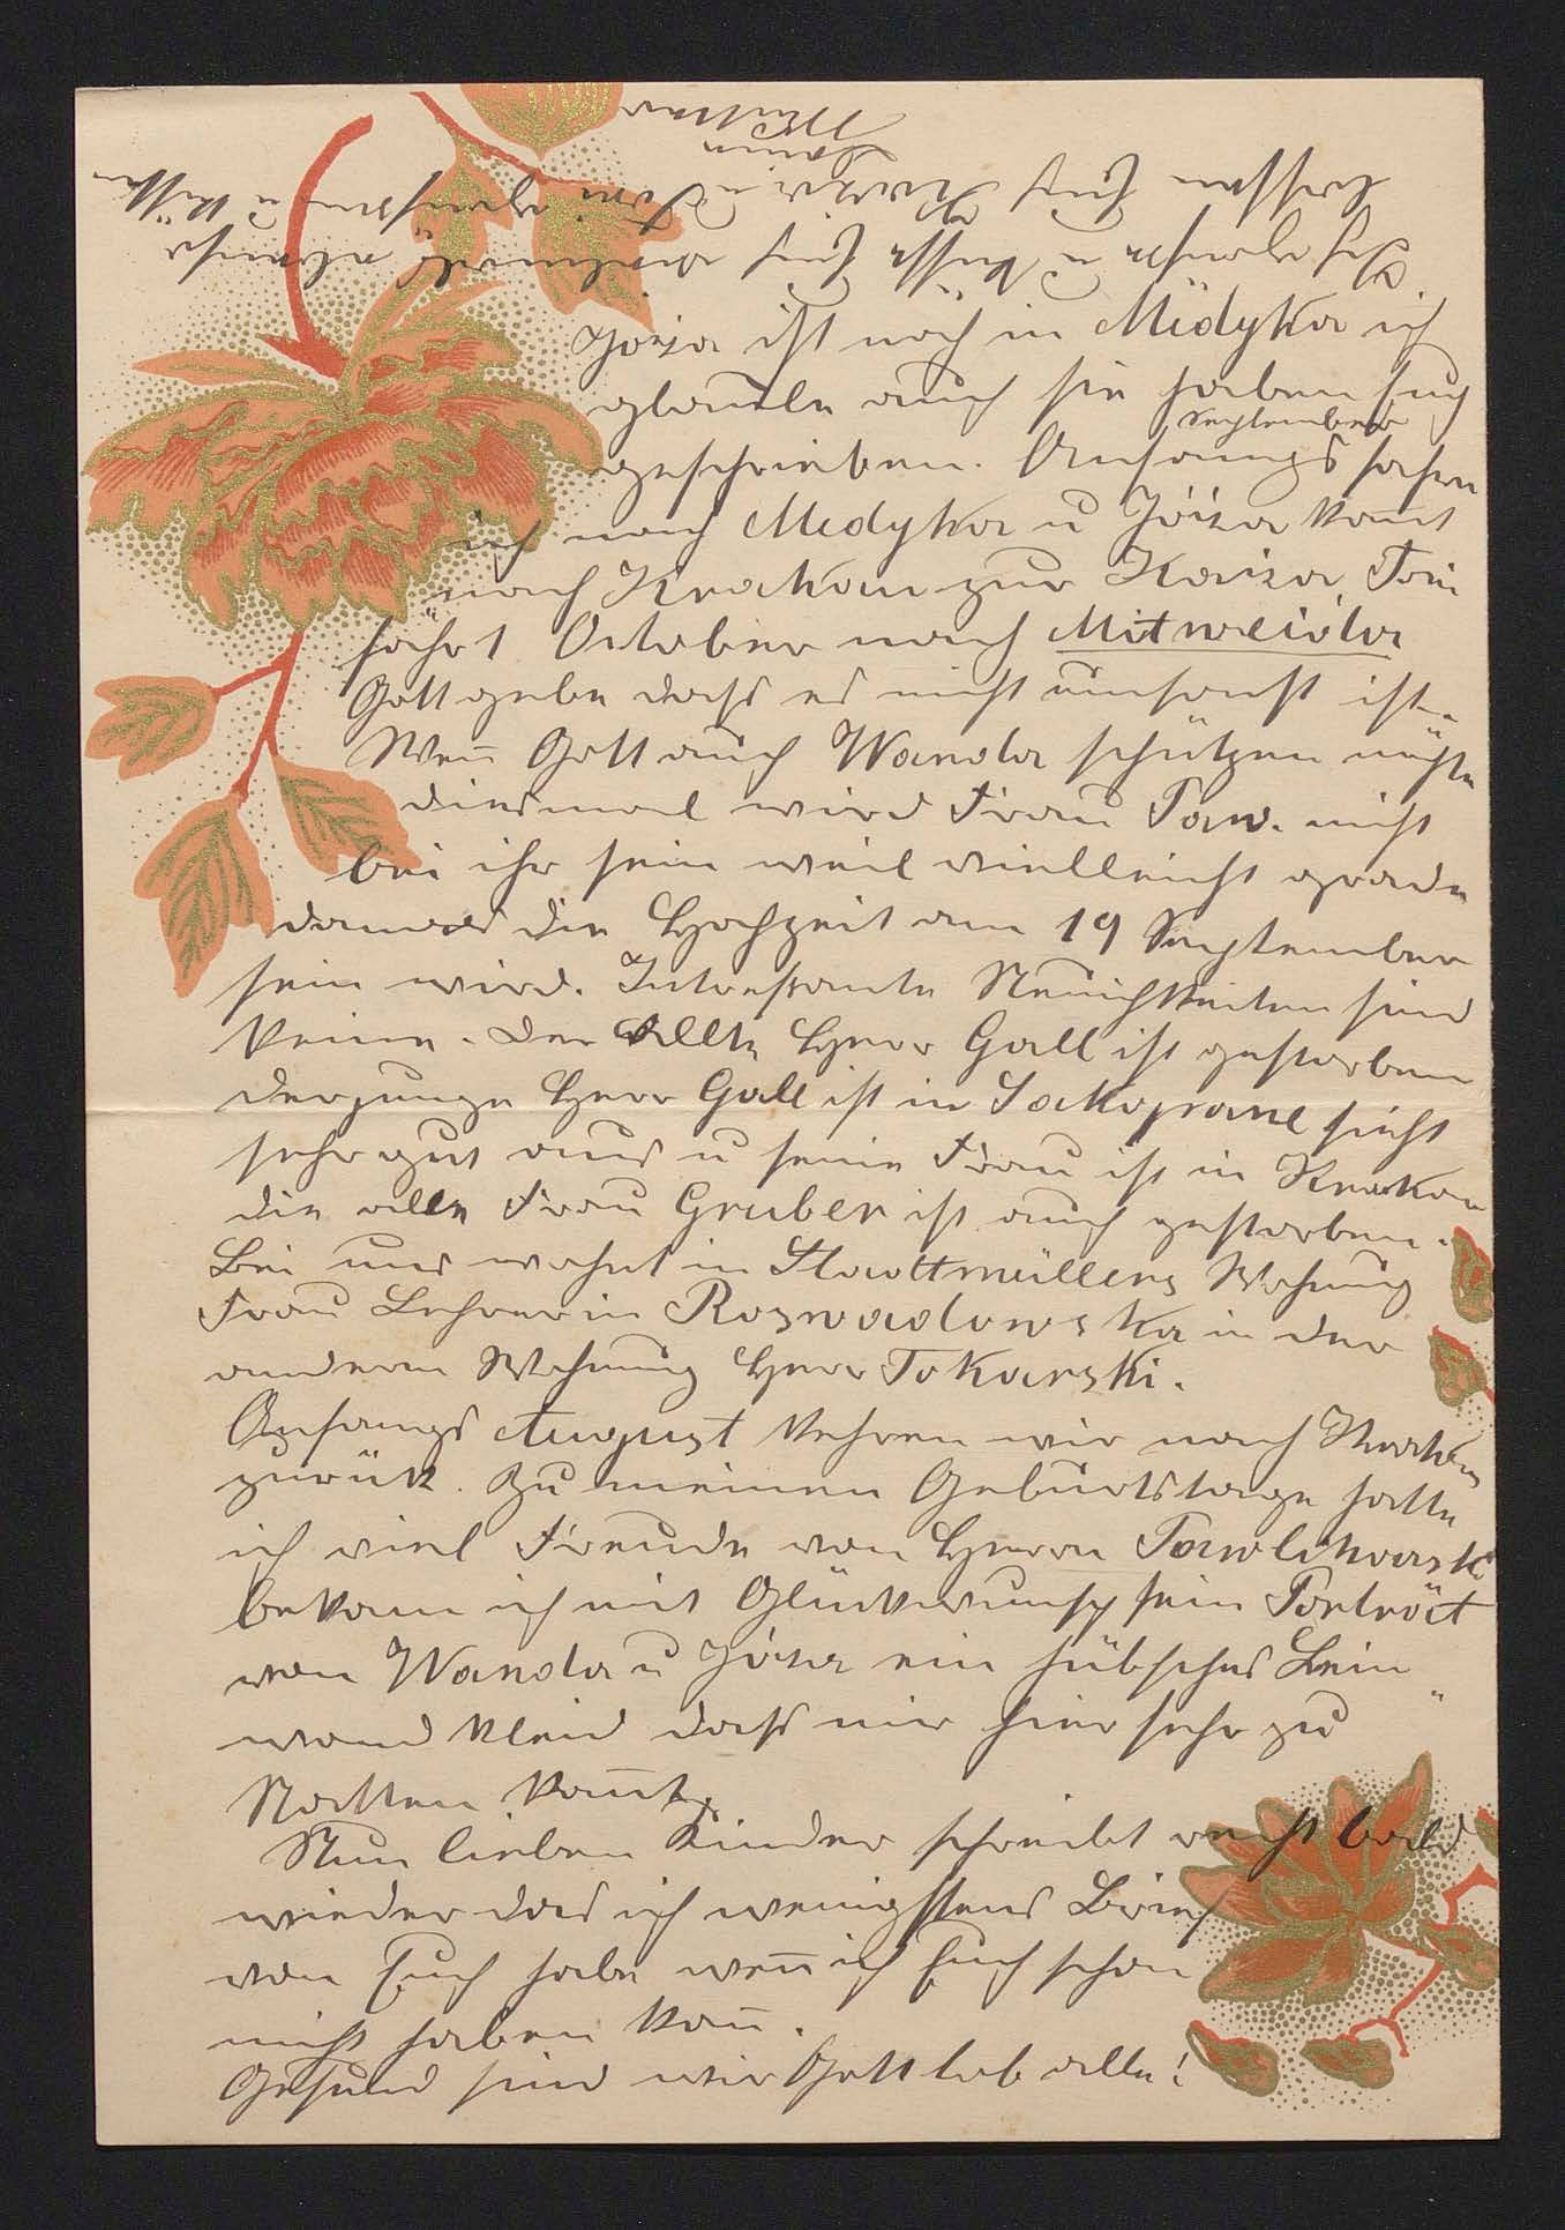 Józia ist noch in Medyka ich
glaube auch sie haben Euch
geschrieben. Anfangs September fahre
ich nach Medyka u Józia komt
nach Krakau zur Kazia, Toni
fährt October nach Mitweida
Gott gebe dass es nicht umsonst ist.
Weñ Gott auch Wanda schützen möchte
diesmal wird Frau Paw. nicht
bei ihr sein weil vielleicht grade
damals die Hochzeit am 19 September
sein wird. Intressante Neuichkeiten sind
keine. Der Allte Herr Gall ist gestorben
der junge Herr Gall ist in Sakopane sieht
sehr gut aus u seine Frau ist in Krakau
die alte Frau Gruber ist auch gestorben.
Bei uns wohnt in Stadtmüllers Wohnung
Frau Lehrerin Roswadowska in der
anderen Wohnung Herr Tokarski.
Anfangs August kehren wir nach Krakau
zurück. Zu meinen Geburtstage hatte
ich viel Freude von Herrn Pawlikowski
bekam ich mit Glückwunsch sein Porträt
von Wanda u Józia ein hübsches Lein
wand Kleid dass mir hier sehr zu
Statten komt.
Nun lieben Kinder schreibt recht bald
wieder das ich wenigstens Brief
von Euch habe weñ ich Euch schon
nicht haben kañ.
Gesund sind wir Gott lob alle!
Ich grüsse u küsse Euch vielmals
lassen Euch Kazia u Toni grüssen u küssen
Mutter